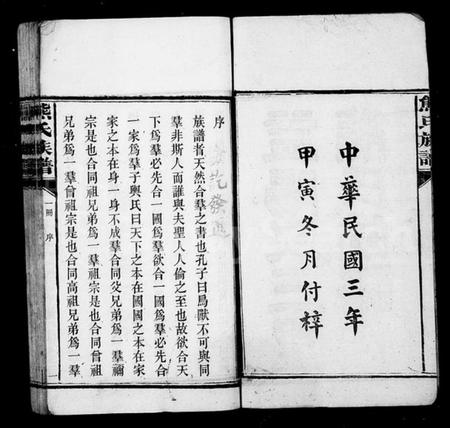 熊氏族譜
中華民國三年
甲寅冬月付梓
序
族譜者天然合羣之書也孔子曰鳥獸不可與同
羣非斯人而誰與夫聖人人倫之至也故欲合天
下為羣必先合一國為羣欲合一國為羣必先合
一家為羣子輿氏曰天下之本在國國之本在家
家之本在身一身不成羣合同父兄弟為一羣禰
宗是也合同祖兄弟為一羣祖宗是也合同曾祖
兄弟為一羣曾祖宗是也合同高祖兄弟為一羣
熊氏族譜
一冊 序